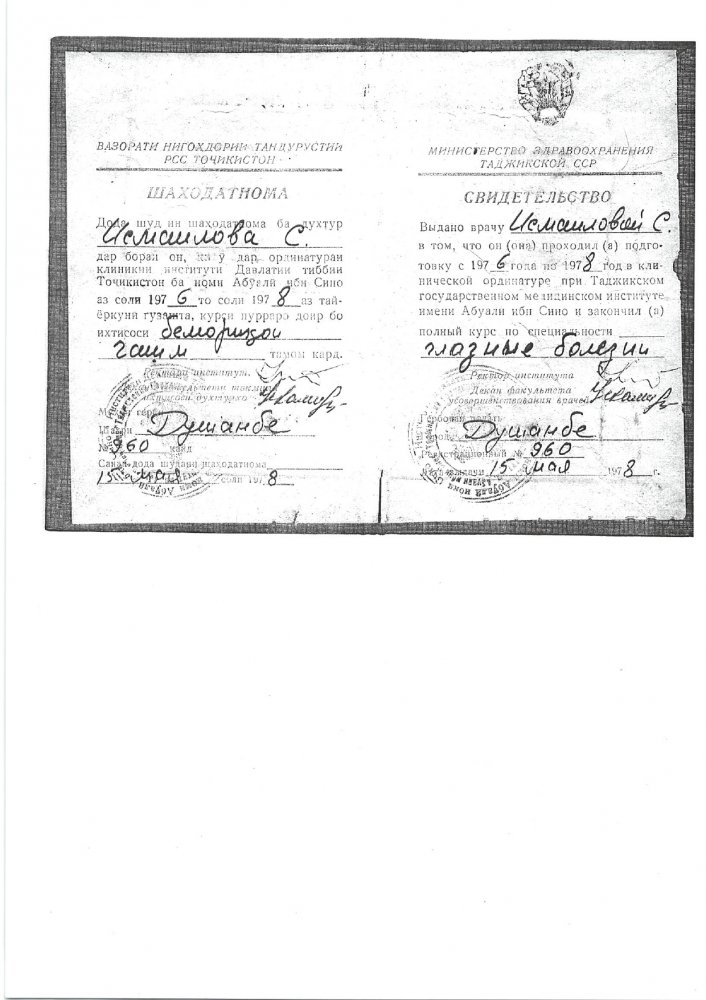 ВАЗОРАТИ НИГОҲДОРИИ ТАНДУРУСТИИ
РСС ТОҶИКИСТОН
ШАҲОДАТНОМА
Дода шуд ин шаҳодатнома ба духтур
Исмаилова С.
дар бораи он, ки ӯ дар ординатураи
клиникии институти Давлатии тиббии
Тоҷикистон ба номи Абӯалӣ ибн Сино
аз соли 1976 то соли 1978 аз тай-
ёркунӣ гузашта, курси пурраро доир бо
ихтисоси бемориҳои
чашм тамом кард.
Ректори институт
Душанбе
№ 960
Санаи дода шудани шаҳодатнома
15 мая соли 1978
МИНИСТЕРСТВО ЗДРАВООХРАНЕНИЯ
ТАДЖИКСКОЙ ССР
СВИДЕТЕЛЬСТВО
Выдано врачу Исмаиловой С.
в том, что он (она) проходил (а) подго-
товку с 1976 года по 1978 год в кли-
нической ординатуре при Таджикском
государственном медицинском институте
имени Абуали ибн Сино и закончил (а)
полный курс по специальности
глазные болезни
Ректор института
Декан факультета
усовершенствования врачей
Душанбе
Регистрационный № 960
15 мая 1978 г.